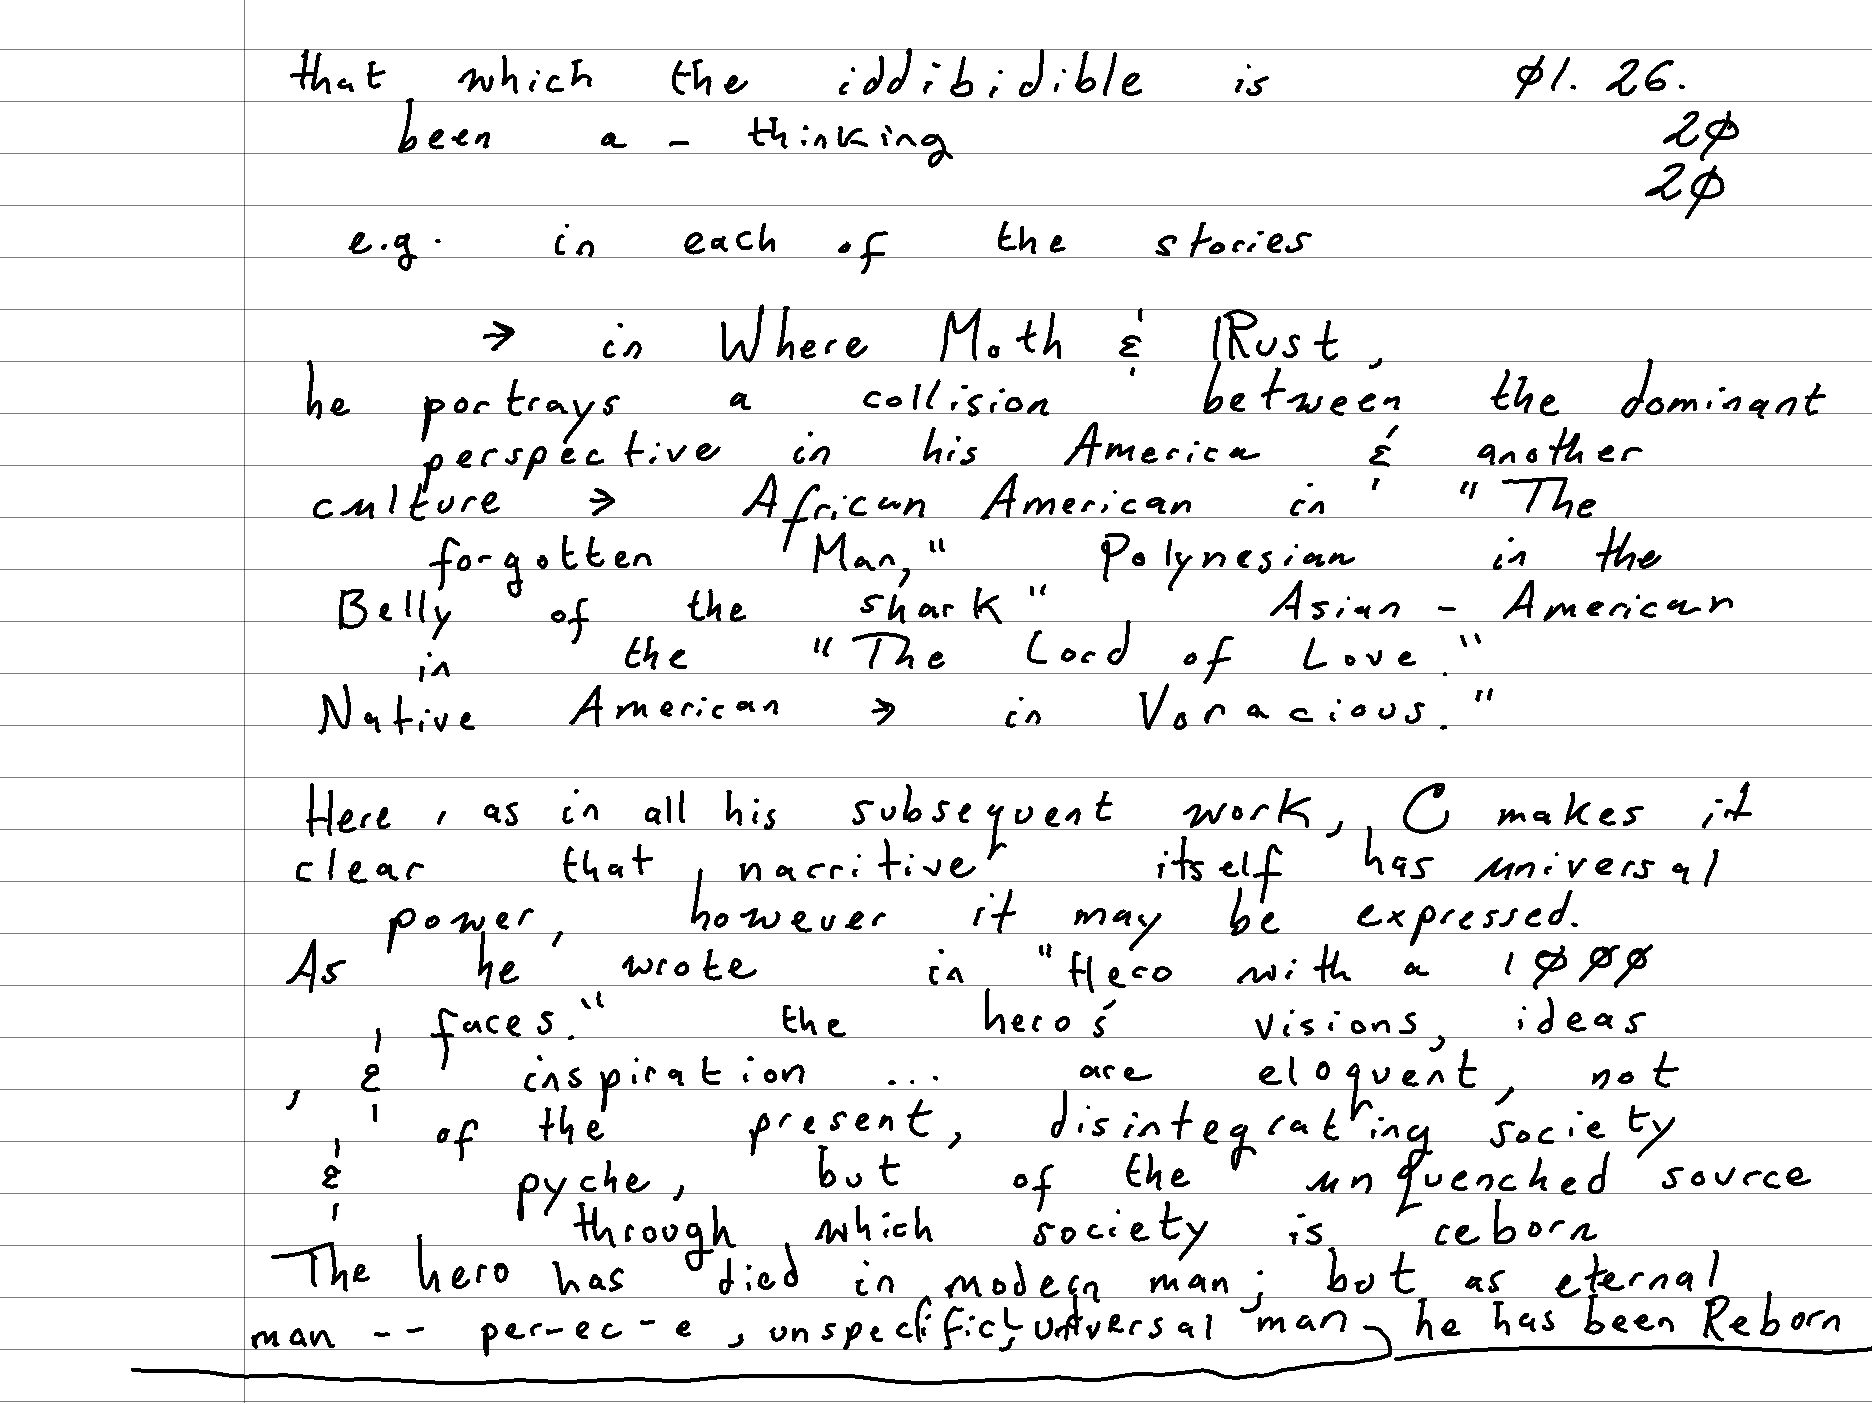 that which the iddibidible is Ø1. 26.
been a - thinking 2Ø
2Ø
e.g. in each of the stories
→ in Where Moth & Rust,
he portrays a collision between the dominant
perspective in his America & another
culture → African American in "The
forgotten Man," Polynesian in the
Belly of the shark" Asian - American
in the "The Lord of Love."
Native American → in Voracious."
Here, as in all his subsequent work, C makes it
clear that narritive itself has universal
power, however it may be expressed.
As he wrote in "Hero with a 1ØØØ
faces." the hero's visions, ideas
, & inspiration ... are eloquent, not
of the present, disintegrating society
& pyche, but of the unquenched source
through which society is reborn
The hero has died in modern man; but as eternal
man -- per-ec-e, unspecific, universal man, he has been Reborn